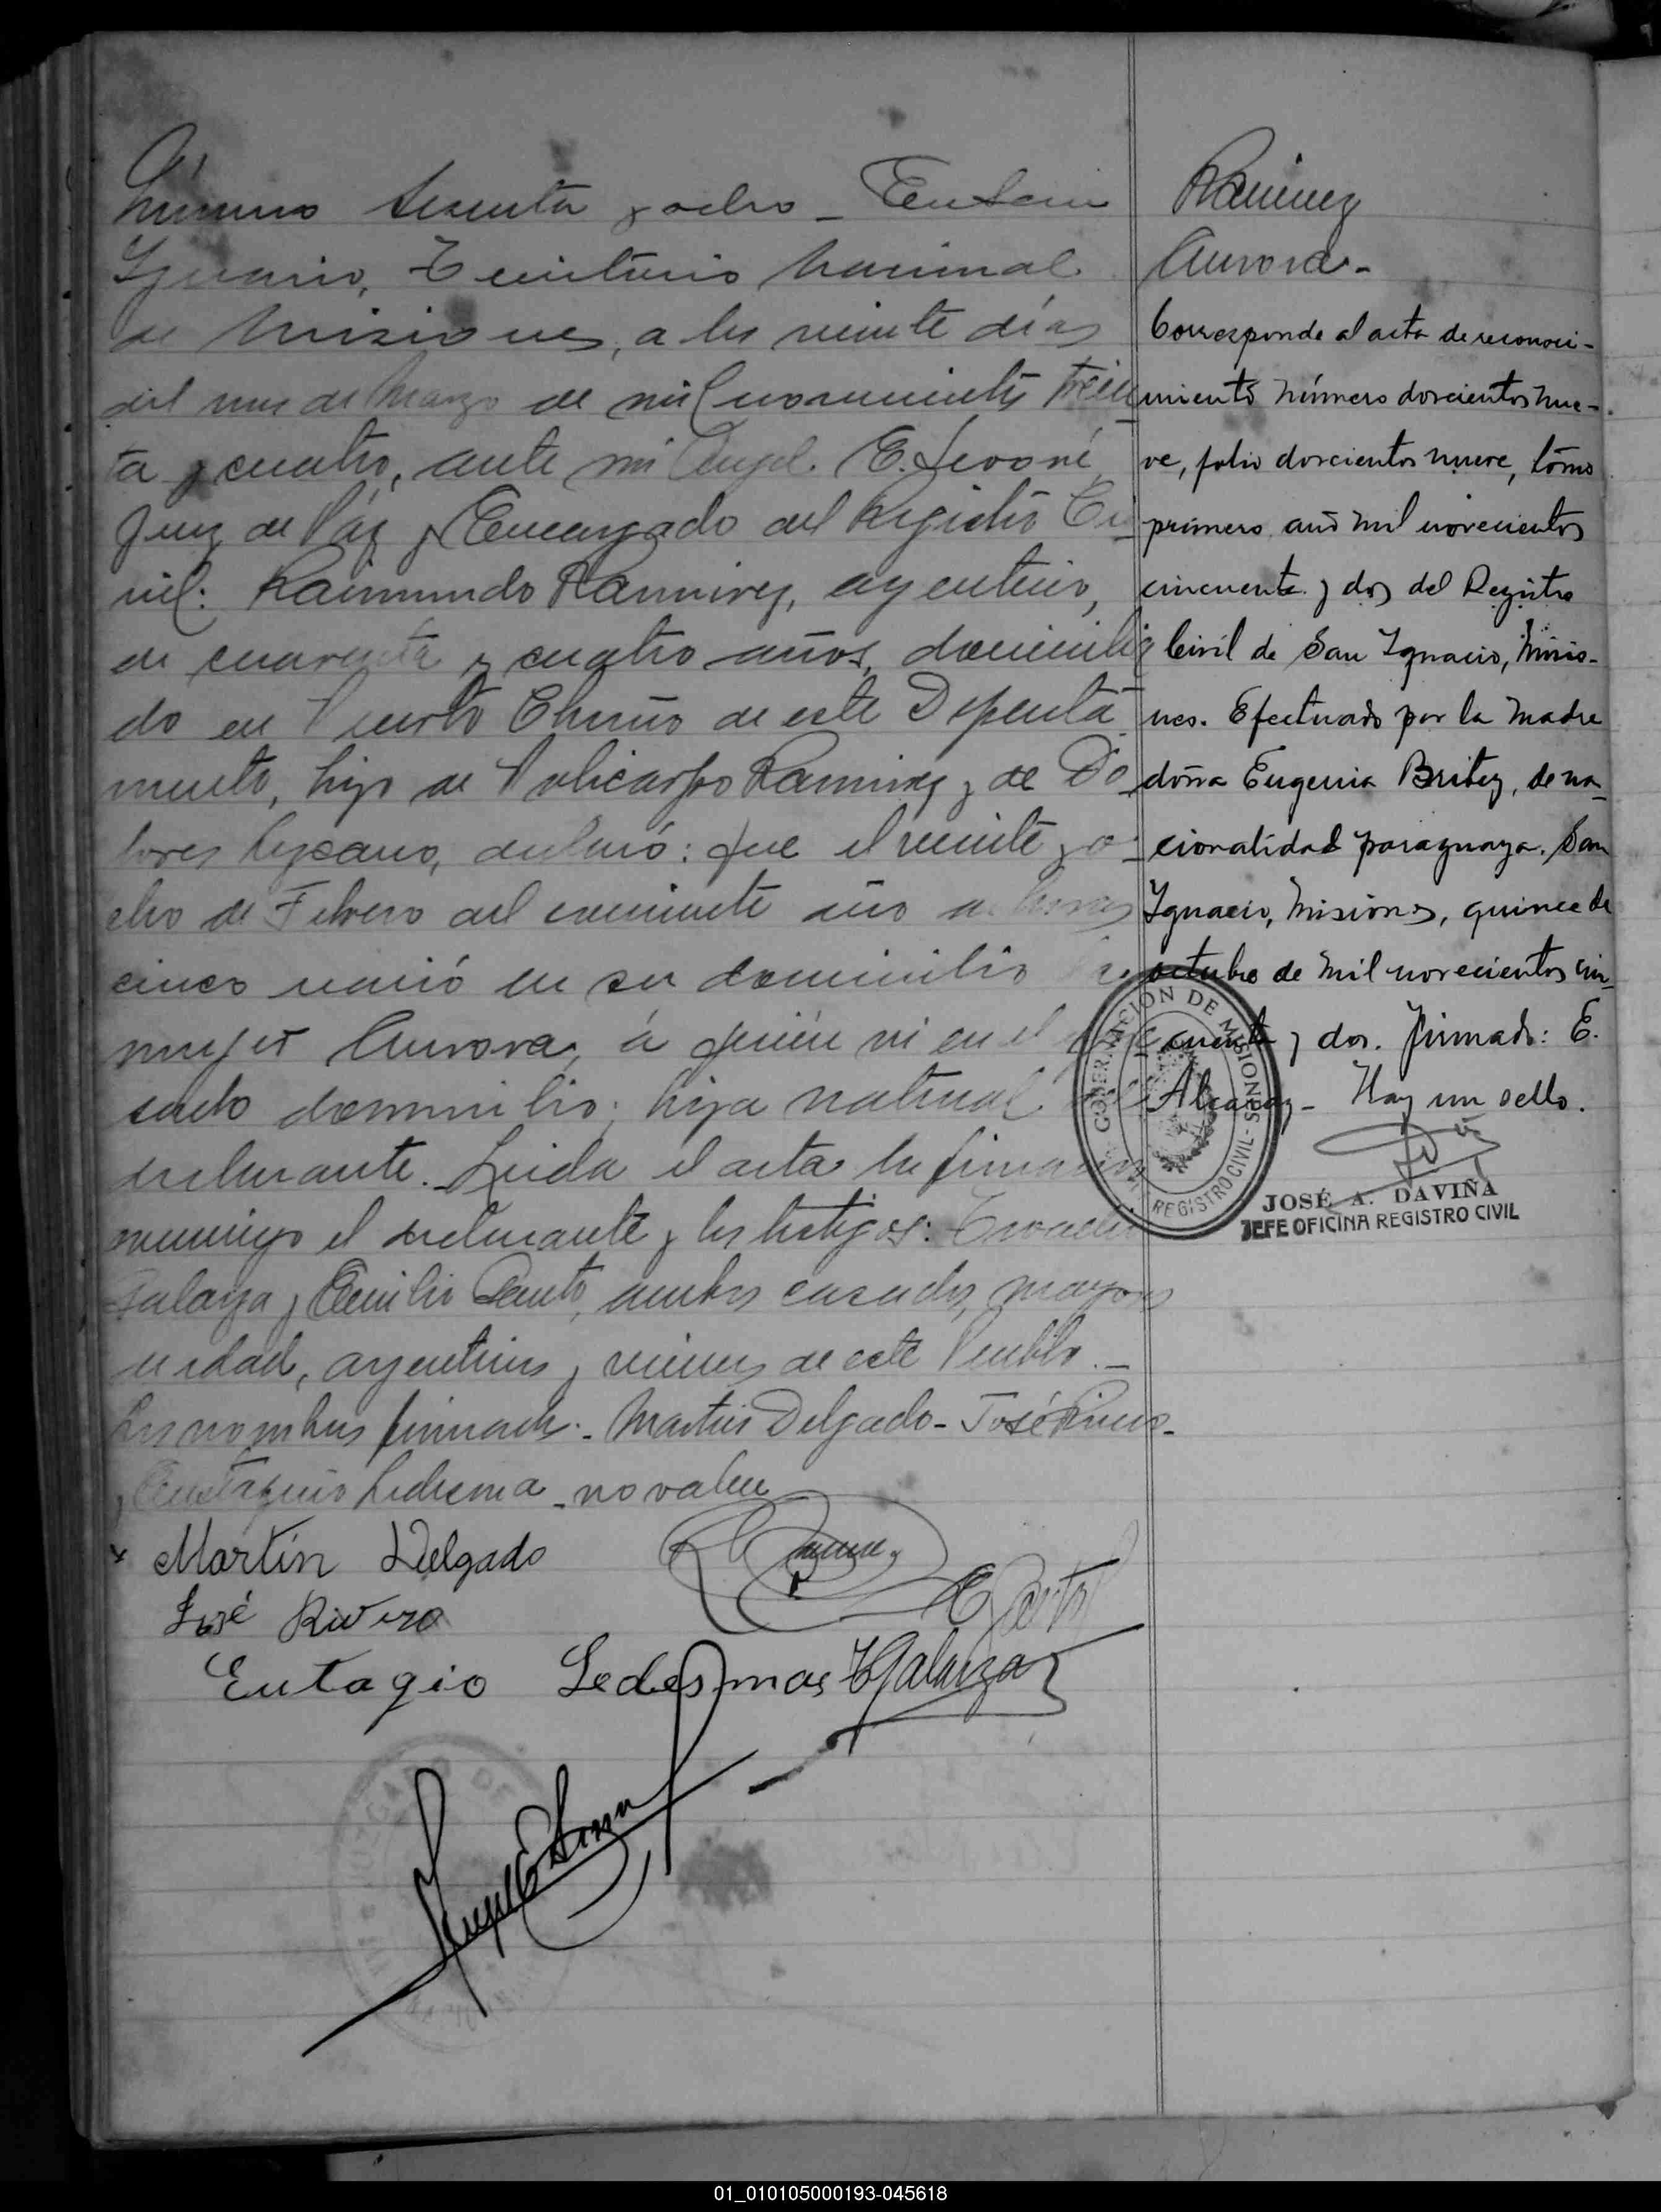 Número sesenta y ocho - En San
Ignacio, Territorio Nacional
de Misiones, a los veinte días
del mes de Marzo de mil novecientos trein
ta y cuatro, ante mi Angel E.
Juez de Páz y Encargado del Registro Ci
vil: Raimundo Ramirez, argentino,
de cuarenta y cuatro años, domicilia
do en Puerto Chuño de este Departa
mento, hijo de Policarpo Ramirez y de Do
lores Lezcano, declaró: que el veinte y o
cho de Febrero del corriente año a horas
cinco nació en su domicilio
mujer Aurora, á quién vi en el
sado domicilio; hija natural del
declarante. Leida el acta la firmaron
conmigo el declarante y los testigos:
Galarza y Emilio ambos casados, mayores
de edad, argentinos y vecinos de este Pueblo.-
Los nombres firmados - Martin Delgado - José Rivero -
y Eustaquio Ledesma - no valen
x Martín Delgado
José Rivero
Eutagio Ledesmas Galarza
Ramirez
Aurora -
Corresponde al acta de reconoci-
miento número doscientos nue-
ve, folio doscientos nueve, tómo
primero año mil novecientos
cincuenta y dos del Registro
Civil de San Ignacio, Misio-
nes. Efectuado por la madre
doña Eugenia Britez, de na-
cionalidad paraguaya. San
Ignacio, Misiones, quince de
octubre de mil novecientos cin-
cuenta y dos. firmado: E.
Alcaraz - Hay un sello.
GOBERNACIÓN DE MISIONES
REGISTRO CIVIL
JOSÉ A. DAVIÑA
JEFE OFICINA REGISTRO CIVIL
JUZGADO DE
01_010105000193-045618